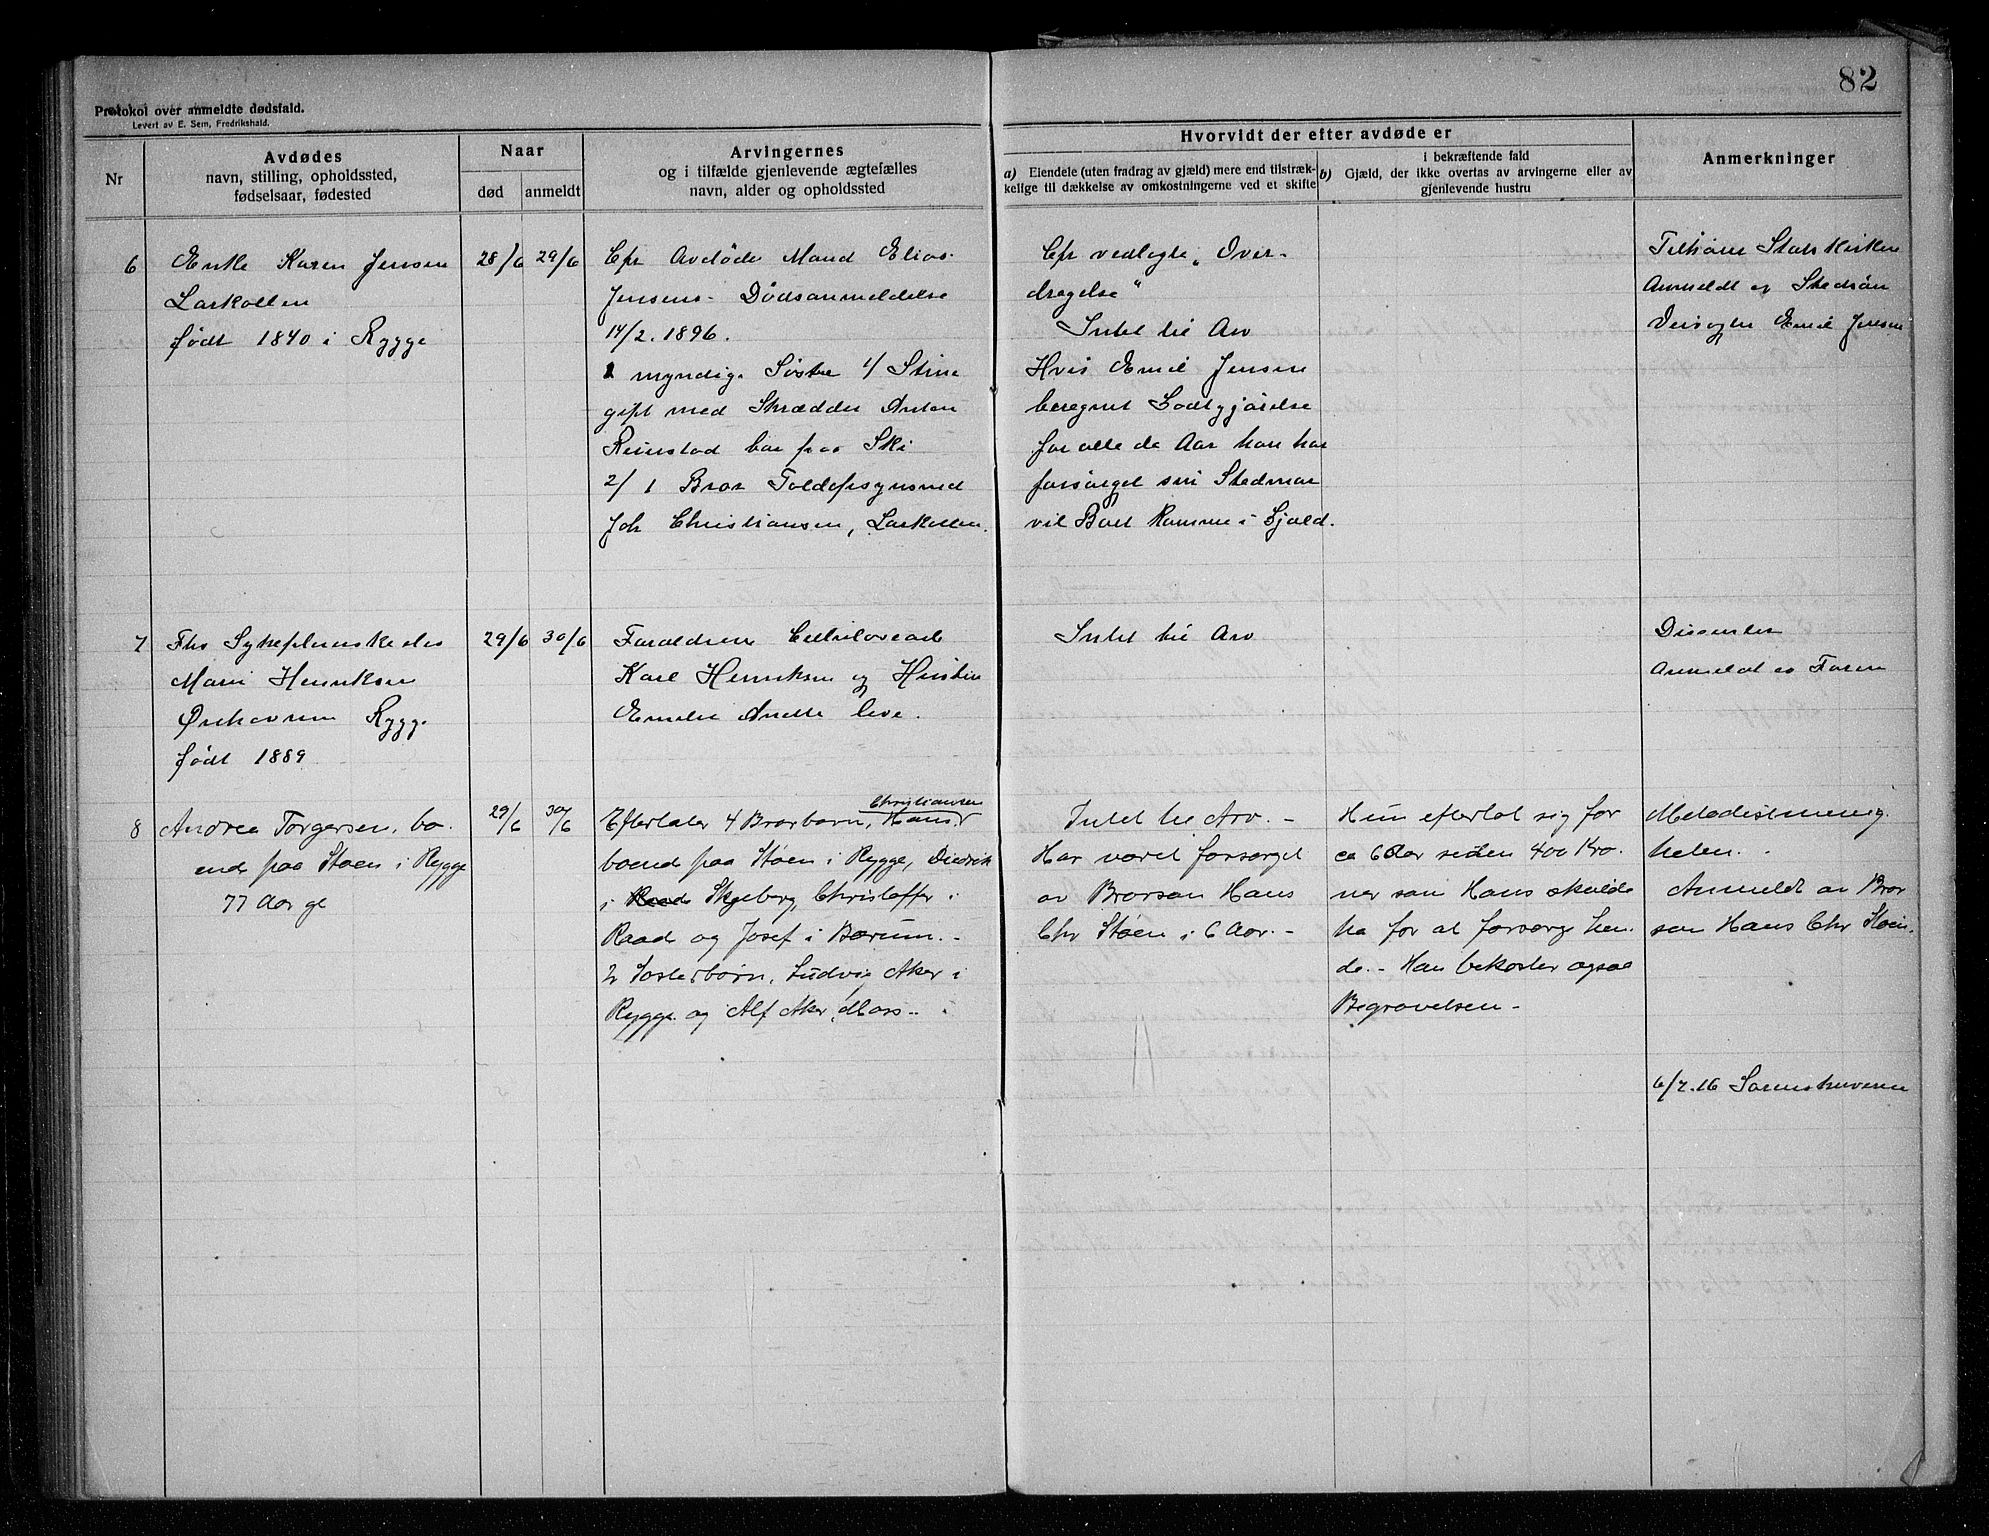 82
Protokol over anmeldte dødsfald.
Levert av E. Sem, Fredrikshald.
Nr
Avdødes
navn, stilling, opholdssted,
fødselsaar, fødested
Naar
død
anmeldt
Arvingernes
og i tilfælde gjenlevende ægtefælles
navn, alder og opholdssted
Hvorvidt der efter avdøde er
a) Eiendele (uten fradrag av gjæld) mere end tilstræk-
kelige til dækkelse av omkostningerne ved et skifte
i bekræftende fald
b) Gjæld, der ikke overtas av arvingerne eller av
gjenlevende hustru
Anmerkninger
6
Enke Karen Jensen
Larkollen
født 1840 i Rygge
28/6
29/6
Cfr Avdøde Mand Elias
Jensens Dødsanmeldelse
14/2. 1896.
myndige Søstre 1/ Stine
gift med Skrædder Anton
Reinstad bor paa Ski
2/ 1 Bror Toldopsynsmd
Joh Christiansen, Larkollen.
Cfr vedlagte „Over-
dragelse"
Intet til Arv
Hvis Emil Jensen
beregnet Godtgjørelse
for alle de Aar han har
forsørget sin Stedmor
vil Boet komme i Gjæld.
Tilhører Statskirken
Anmeldt av Stedsøn
Emil Jensen
7
Fhv Sykepleierske
Marie Henriksen
Rygge
født 1889
29/6
30/6
Forældrene
Karl Henriksen og Hustru
Emilie Anette leve.
Intet til Arv
Dissenter
Anmeldt av Faren
8
Andrea Torgersen, bo-
ende paa Støen i Rygge
77 Aar gl
29/6
30/6
Christiansen
Efterlater 4 Brorbarn, Hans
boend paa Støen i Rygge, Diedrik
i Raade Skjeberg, Christoffer i
Raad og Josef i Bærum. -
2 Søsterbørn, Ludvig Aker i
Rygge og Alf Aker, Moss -
Intet til Arv. -
Har været forsørget
av Brorsøn Hans
Chr Støen i 6 Aar. -
Hun efterlot sig for
ca 6 Aar siden 400 Kro-
ner som Hans skulde
ha for at forsørge hen-
de. - Han bekoster også
Begravelsen -
Metodistmenig-
heten. -
Anmeldt av Bror
søn Hans Chr Støen.
6/7. 16 Sorenskriveren